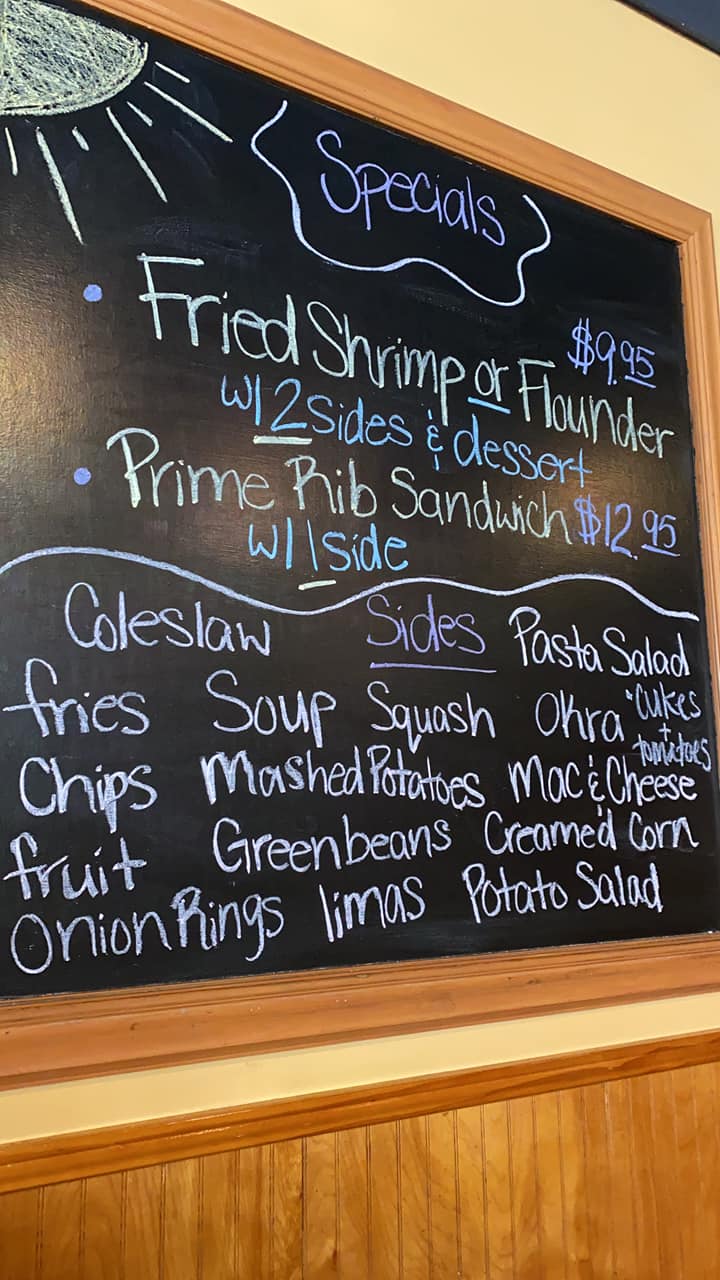 Specials
• Fried Shrimp or Flounder $9.95
w/ 2 sides & dessert
• Prime Rib Sandwich $12.95
w/ 1 side
Coleslaw Sides Pasta Salad
fries Soup Squash Okra Cukes + tomatoes
Chips Mashed Potatoes Mac & Cheese
fruit Greenbeans Creamed Corn
Onion Rings limas Potato Salad